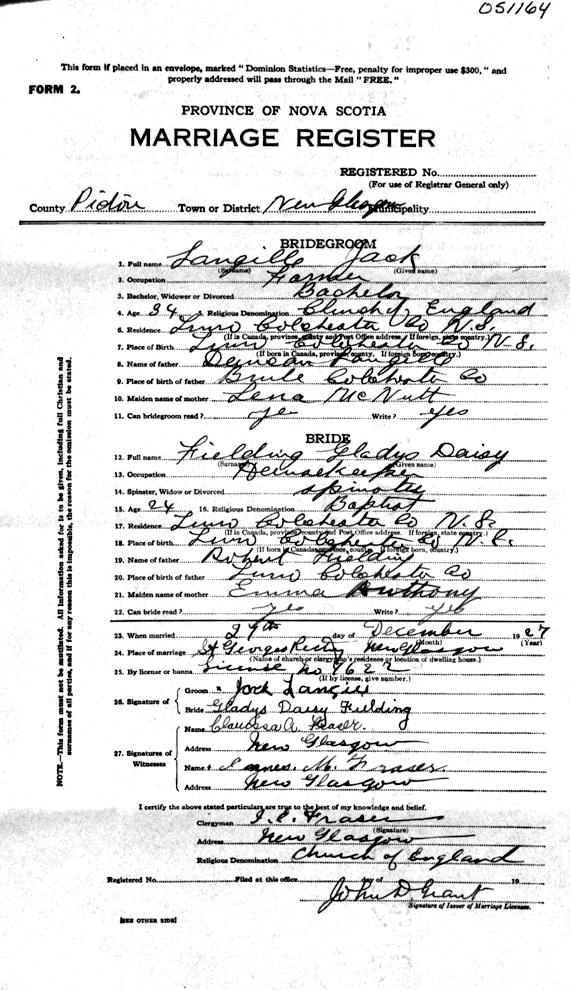 051164
This form if placed in an envelope, marked "Dominion Statistics—Free, penalty for improper use $300," and
properly addressed will pass through the Mail "FREE."
FORM 2.
PROVINCE OF NOVA SCOTIA
MARRIAGE REGISTER
REGISTERED No.
(For use of Registrar General only)
County Pictou Town or District New Glasgow Municipality
BRIDEGROOM
1. Full name Langille Jack
(Surname) (Given name)
2. Occupation Farmer
3. Bachelor, Widower or Divorced Bachelor
4. Age 34 5. Religious Denomination Church of England
6. Residence Colchester Co N.S.
(If in Canada, province, county and Post Office address. If foreign, state country.)
7. Place of Birth Colchester Co N.S.
(If born in Canada, province, county. If foreign born, country.)
8. Name of father Duncan Langille
9. Place of birth of father Brule Colchester Co
10. Maiden name of mother Lena McNutt
11. Can bridegroom read? ye Write? yes
BRIDE
12. Full name Fielding Gladys Daisy
(Surname) (Given name)
13. Occupation Housekeeper
14. Spinster, Widow or Divorced
15. Age 24 16. Religious Denomination Baptist
17. Residence Colchester Co N.S.
(If in Canada, province, county and Post Office address. If foreign, state country.)
18. Place of birth Colchester Co N.S.
(If born in Canada, province, county. If foreign born, country.)
19. Name of father Robert Fielding
20. Place of birth of father Colchester Co
21. Maiden name of mother Emma Anthony
22. Can bride read? yes Write? yes
23. When married 29th day of December 1927
(Month) (Year)
24. Place of marriage St Georges Rectory New Glasgow
(Name of church or clergyman's residence or location of dwelling house.)
25. By license or banns License no
(If by license, give number.)
26. Signature of
Groom Jack Langille
Bride Gladys Daisy Fielding
27. Signatures of Witnesses
Name A. Fraser.
Address New Glasgow
Name M. Fraser.
Address New Glasgow
I certify the above stated particulars are true to the best of my knowledge and belief.
Clergyman Fraser
(Signature)
Address New Glasgow
Religious Denomination Church of England
Registered No. Filed at this office day of 19
John D Grant
Signature of Issuer of Marriage Licenses.
[SEE OTHER SIDE]
NOTE.—This form must not be mutilated. All information asked for is to be given, including full Christian and
surnames of all parties, and if for any reason this is impossible, the reason for the omission must be stated.